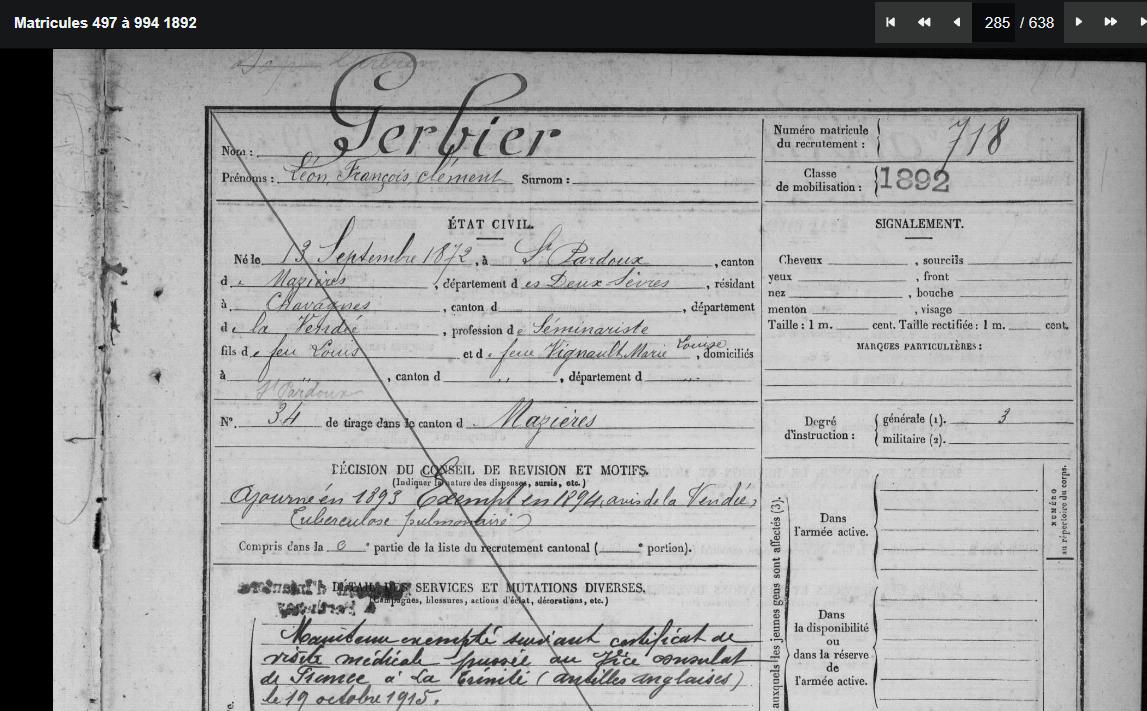 Matricules 497 à 994 1892
285 / 638
Gerbier
Nom :
Prénoms : Léon, François, clément Surnom :
Numéro matricule
du recrutement : 718
Classe
de mobilisation : 1892
ÉTAT CIVIL.
Né le 13 Septembre 1872, à St Pardoux, canton
de Mazières, département des Deux Sèvres, résidant
à Chavagnes, canton d, département
de la Vendée, profession de Séminariste
fils de feu Louis et de feue Vignault Marie Louise, domiciliés
à " , canton d " , département d "
St Pardoux
N°. 34 de tirage dans le canton d Mazières
SIGNALEMENT.
Cheveux , sourcils
yeux , front
nez , bouche
menton , visage
Taille : 1 m. cent. Taille rectifiée : 1 m. cent.
MARQUES PARTICULIÈRES :
Degré
d'instruction :
générale (1). 3
militaire (2).
DÉCISION DU CONSEIL DE REVISION ET MOTIFS.
(Indiquer la nature des dispenses, sursis, etc.)
Ajourné en 1893 Exempt en 1894, avis de la Vendée,
Tuberculose pulmonaire)
Compris dans la 0 e partie de la liste du recrutement cantonal ( e portion).
DÉTAIL DES SERVICES ET MUTATIONS DIVERSES.
(Campagnes, blessures, actions d'éclat, décorations, etc.)
Maintenu exempté suivant certificat de
visite médicale passée au Vice consulat
de France à La Trinité (antilles anglaises)
le 19 octobre 1915.
NUMÉRO
au répertoire du corps.
auxquels les jeunes gens sont affectés (3).
Dans
l'armée active.
Dans
la disponibilité
ou
dans la réserve
de
l'armée active.